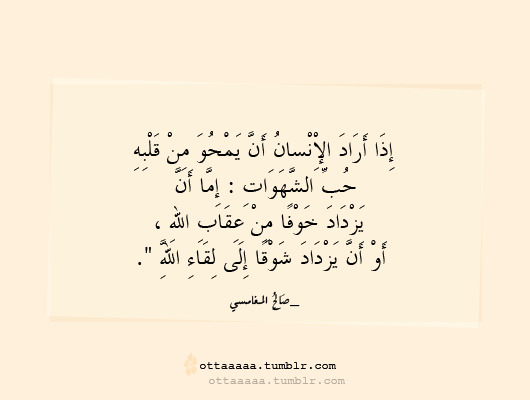 إِذَا أَرَادَ الإِنْسانُ أَنَّ يَمْحُوَ مِنْ قَلْبِهِ
حُبِّ الشَّهَوَاتِ : إِمَّا أَنَّ
يَزْدَادَ خَوْفًا مِنْ عِقَابِ اللهِ ،
أَوْ أَنَّ يَزْدَادَ شَوْقًا إِلَى لِقَاءِ اللَّهِ ".
_صَالِحُ المغامسي
ottaaaaa.tumblr.com
ottaaaaa.tumblr.com